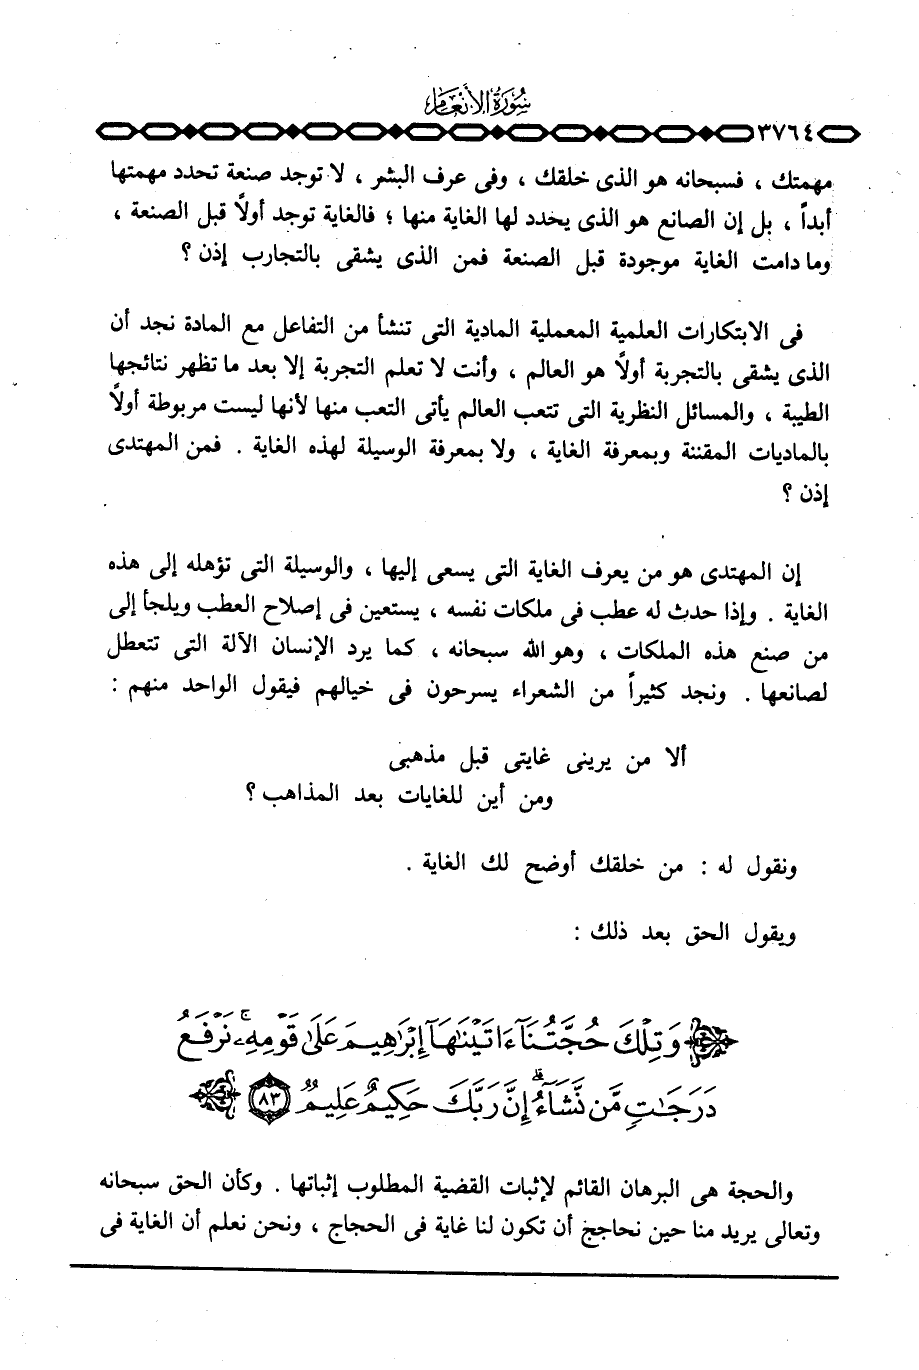 سورة الأنعام
٣٧٦٤
مهمتك ، فسبحانه هو الذى خلقك ، وفى عرف البشر ، لا توجد صنعة تحدد مهمتها
أبداً ، بل إن الصانع هو الذى يحدد لها الغاية منها ؛ فالغاية توجد أولاً قبل الصنعة ،
وما دامت الغاية موجودة قبل الصنعة فمن الذى يشقى بالتجارب إذن ؟
فى الابتكارات العلمية المعملية المادية التى تنشأ من التفاعل مع المادة نجد أن
الذى يشقى بالتجربة أولاً هو العالم ، وأنت لا تعلم التجربة إلا بعد ما تظهر نتائجها
الطيبة ، والمسائل النظرية التى تتعب العالم يأتى التعب منها لأنها ليست مربوطة أولاً
بالماديات المقننة وبمعرفة الغاية ، ولا بمعرفة الوسيلة لهذه الغاية . فمن المهتدى
إذن ؟
إن المهتدى هو من يعرف الغاية التى يسعى إليها ، والوسيلة التى تؤهله إلى هذه
الغاية . وإذا حدث له عطب فى ملكات نفسه ، يستعين فى إصلاح العطب ويلجأ إلى
من صنع هذه الملكات ، وهو الله سبحانه ، كما يرد الإنسان الآلة التى تتعطل
لصانعها . ونجد كثيراً من الشعراء يسرحون فى خيالهم فيقول الواحد منهم :
ألا من يرينى غايتى قبل مذهبى
ومن أين للغايات بعد المذاهب ؟
ونقول له : من خلقك أوضح لك الغاية .
ويقول الحق بعد ذلك :
وَتِلْكَ حُجَّتُنَآ ءَاتَيْنَٰهَآ إِبْرَٰهِيمَ عَلَىٰ قَوْمِهِۦ ۚ نَرْفَعُ
دَرَجَٰتٍ مَّن نَّشَآءُ ۗ إِنَّ رَبَّكَ حَكِيمٌ عَلِيمٌ ٨٣
والحجة هى البرهان القائم لإثبات القضية المطلوب إثباتها . وكأن الحق سبحانه
وتعالى يريد منا حين نحاجج أن تكون لنا غاية فى الحجاج ، ونحن نعلم أن الغاية فى